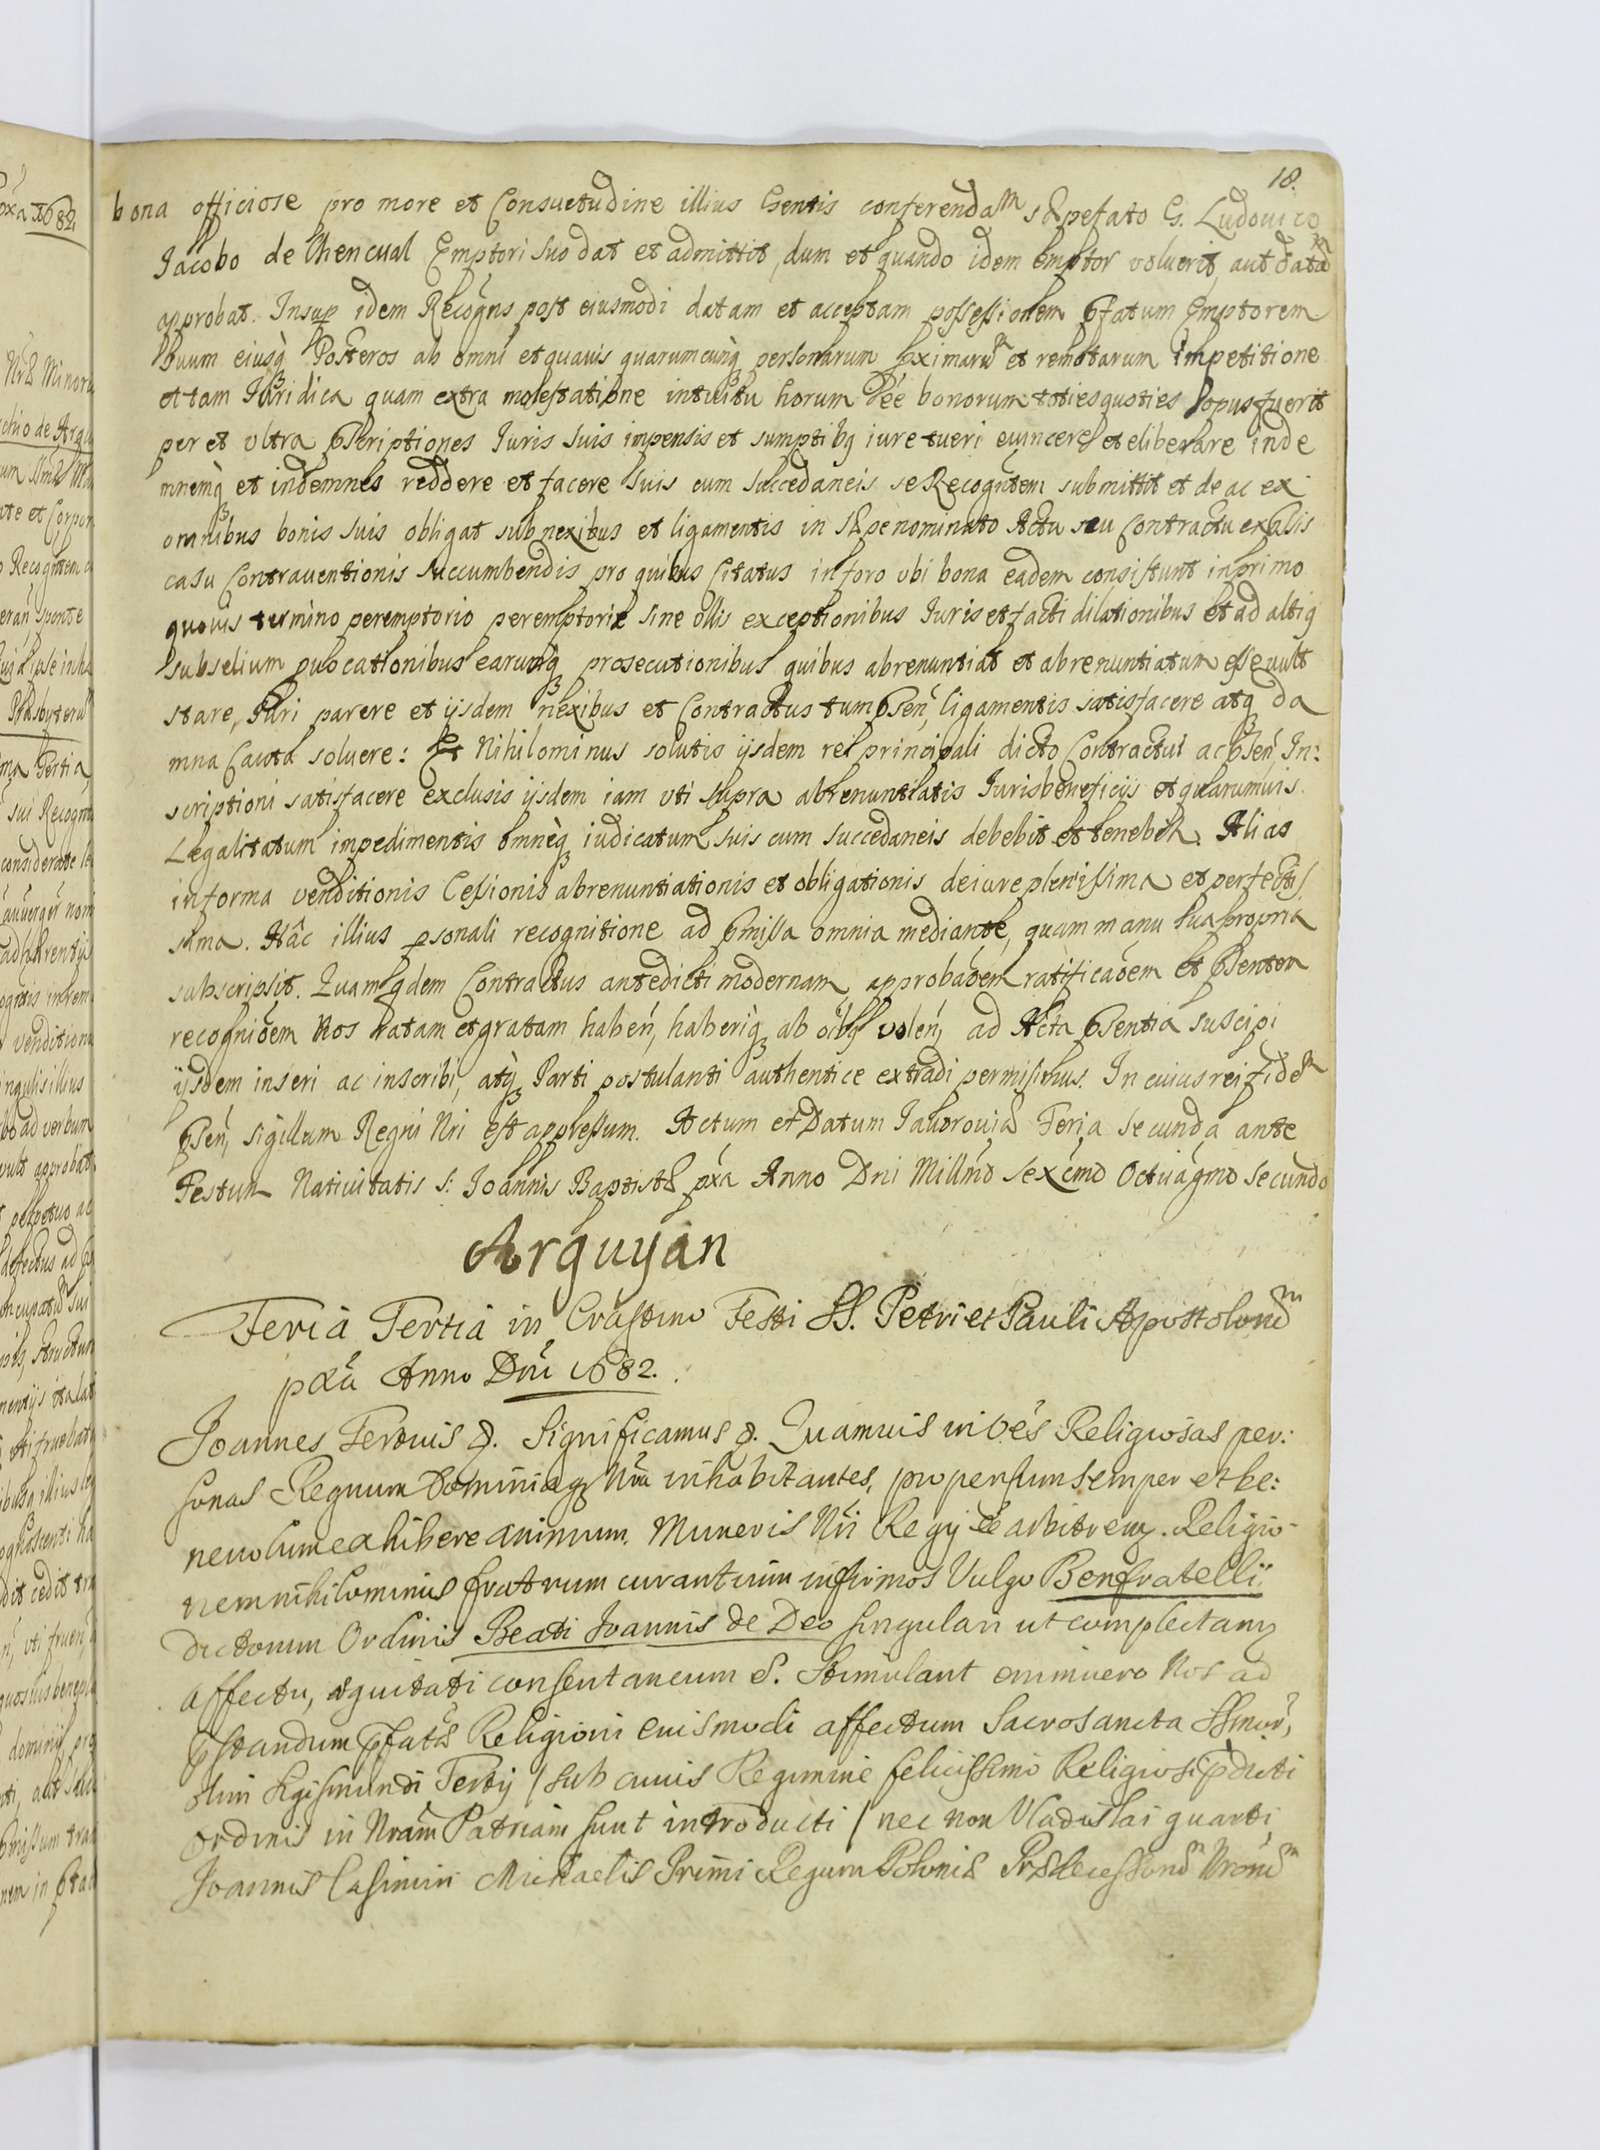 18.
bona officiose pro more et Consuetudine illius Gentis conferendam sæpefato G. Ludouico
Iacobo de Chencual Emptori suo dat et admittit, dum et quando idem emptor voluerit, aut data
approbat. Insup idem Recogns post eiusmodi datam et acceptam possessionem pfatum Emptorem
suum eiusq Posteros ab omni et quauis quarumcunq personarum proximaru et remotarum impetitione
et tam Iuridica quam extra molestatione intuitu horum bonorum toties quoties opus fuerit
per et vltra pscriptiones Iuris suis impensis et sumptibq iure tueri euincere et eliberare inde
mnemq et indemnes reddere et facere suis cum succedaneis se Recogntem submittit et de ac ex
omnibus bonis suis obligat sub nexibus et ligamentis in sæpenominato Actu seu Contractu expssis
casu Contrauentionis succumbendis pro quibus Citatus in foro vbi bona eadem consistunt in primo
quouis termino peremptorio peremptorie sine ollis exceptionibus Iuris et facti dilationibus et ad altiq
subselium puocationibus earumq prosecutionibus quibus abrenuntiat et abrenuntiatum esse vult
stare, Iuri parere et ijsdem nexibus et Contractus tum psen, ligamentis satisfacere atq da
mna Cauta soluere: Et Nihilominus solutis ijsdem rei principali dicto Contractui ac psen In:
scriptioni satisfacere exclusis ijsdem iam vti supra abrenuntiatis Iuris beneficijs et quarumuis
Legalitatum impedimentis omneq iudicatum suis cum succedaneis debebit et tenebit. Alias
in forma venditionis Cessionis abrenuntiationis et obligationis de iure plenissima et perfectis
sima. Hâc illius psonali recognitione ad pmissa omnia mediante, quam manu sua propria
subscripsit. Quam qdem Contractus antedicti modernam approbaoem ratificaoem et psentem
recognioem Nos ratam et gratam haben, haberiq ab oibq volen, ad Acta psentia suscipi
ijsdem inseri ac inscribi, atq Parti postulanti authentice extradi permisimus. In cuius rei fidem
psen, sigillum Regni Nri est appressum. Actum et Datum Iauorouiæ Feria secunda ante
Festum Natiuitatis S: Ioannis Baptistæ pxa Anno Dni Millmo sexcmo Octuagmo secundo
Arguyan
Feria Tertia in Crastino Festi SS. Petri et Pauli Apostolorum
pxa Anno Dni 1682.
Joannes Tertius &. Significamus &. Quamuis in oes Religiosas per:
sonas Regnum Dominiaq Nra inhabitantes, propensum semper et be:
neuolum exhibere animum. Muneris Nri Regij arbitremq. Religio-
nem nihilominus fratrum curantium infirmos Vulgo Benfratelli
dictorum Ordinis Beati Joannis de Deo singulari ut complectamq
affectu, æquitati consentaneum &. Stimulant enimuero Nos ad
pstandum pfatæ Religioni eiusmodi affectum Sacrosancta SSmor,
olim Sigismundi Tertij / sub cuius Regimine felicissimo Religiosi pdicti
Ordinis in Nram Patriam sunt introducti / nec non Vladislai quarti
Joannis Casimiri Michaelis Primi Regum Poloniæ Prædecessorum Nrorum